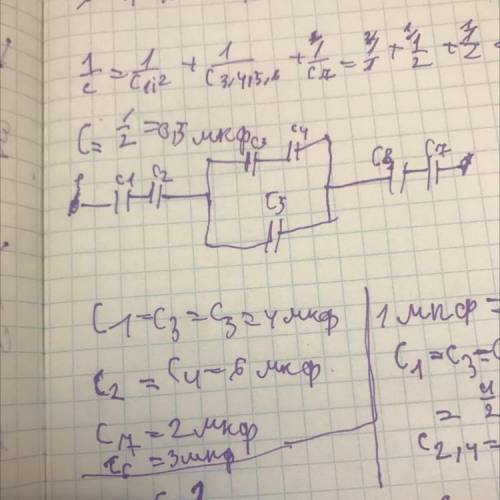 1/c = 1/C1,2 + 1/C3,4,5,6 + 1/C7 = 2/1 + 1/2 + 1/2
C = 1/2 = 0,5 мкф
C3 C4
C1 C2 C8 C7
C5
C1=C3=C3=4 мкф
C2 = C4 = 6 мкф
C7 = 2 мкф
C6 = 3 мкф
1 мкф =
C1=C3=
= 4/2
C2,4 =